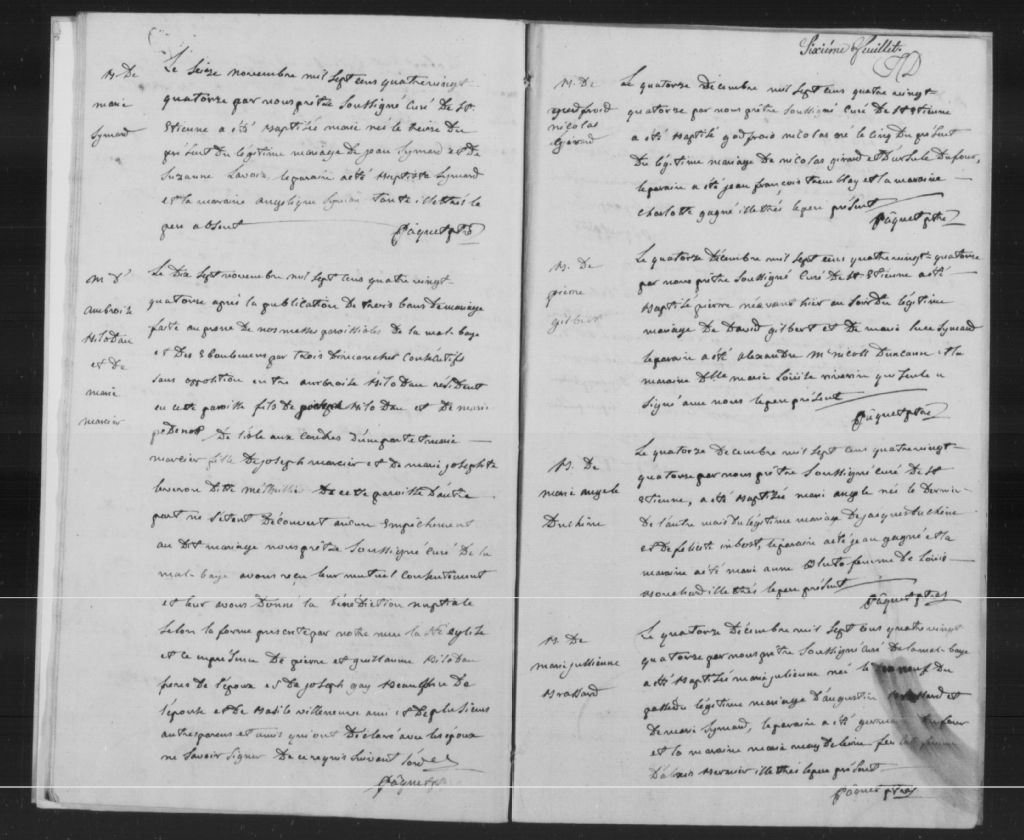 B. De
marie
Symard
Le Seize novembre mil Sept cens quatrevingt
quatorze par nous prêtre Soussigné Curé De St
Etienne a été Baptisée marie née le treize Du
présent Du légitime mariage De jean Symard et De
Suzanne Savoie, le parain a été Baptiste Symard
et la maraine angelique Symar tante illethrés le
pere absent
Pâquet ptre
M. D'
ambroise
BiloDau
et De
marie
marcier
Le Dix Sept novembre mil Sept cens quatrevingt-
quatorze après la publication De throis bans De mariage
faite au prone De nos messes paroissiales De la mal-baye
et Des Eboulemens par trois Dimanches Consécutifs
Sans opposition entre ambroise BiloDau résident
en cette paroisse fils De joseph BiloDau et De marie
De l'isle aux Coudres D'une parte et marie
marcier fille De joseph marcier et De marie josephte
Ditte De cette paroisse D'autre
part ne S'étant Découvert aucun Empêchement
au Dit mariage nous prêtre Soussigné Curé De la
mal-baye avons reçu leur mutuel Consentement
et leur avons Donné la bénédiction nuptiale
Selon la forme prescrite par notre mere la Ste eglise
et ce en presence De pierre et guillaume BiloDau
freres De l'époux et De joseph gay Beaufrere De
l'épouse et De Basile villeneuve ami et De plusieurs
autres parens et amis qui ont Déclaré avec les époux
ne Savoir Signer De ce requis Suivant l'ord
Pâquet ptre
Sixième feuillet.
B. De
godfroid
nicolas
Girard
Le quatorze Décembre mil Sept cens quatre vingt
quatorze par nous prêtre Soussigné Curé De St Etienne
a été Baptisé godfroid nicolas né le Cinq Du présent
Du légitime mariage De nicolas girard et D'ursule Dufour,
le parain a été jean françois tremblay et la maraine
Charlotte gagné illethrés le pere présent
Pâquet ptre
B. De
pierre
gilbert
Le quatorze Décembre mil Sept cens quatrevingt-quatorze
par nous prêtre Soussigné Curé De St Etienne a été
Baptisé pierre né avant hier au Soir Du légitime
mariage De David gilbert et De marie luce Symard
le parain a été alexandre Mc nicoll Duncann et la
maraine Dlle marie qui Seule a
Signé avec nous le pere présent
Pâquet ptre
B. De
marie angele
Duchéne
Le quatorze Decembre mil Sept cens quatrevingt-
quatorze par nous prêtre Soussigné Curé De St
Etienne, a été Baptisée marie angele née le Dernier
De l'autre mois Du légitime mariage De jacques Duchéne
et De félicité imbert, le parain a été jean gagné et la
maraine a été marie anne femme De Louis
Bouchard illethrés le pere présent
Pâquet ptre
B. De
marie jullienne
Brassard
Le quatorze Décembre mil Sept cens quatrevingt
quatorze par nous prêtre Soussigné Curé De la mal-baye
a été Baptisée marie julienne née le neuf Du
passé Du légitime mariage D'augustin Brassard et
De marie Symard, le parain a été germain Dufour
et la maraine marie femme
D'alexis Bernier illethrés le pere présent
Pâquet ptre